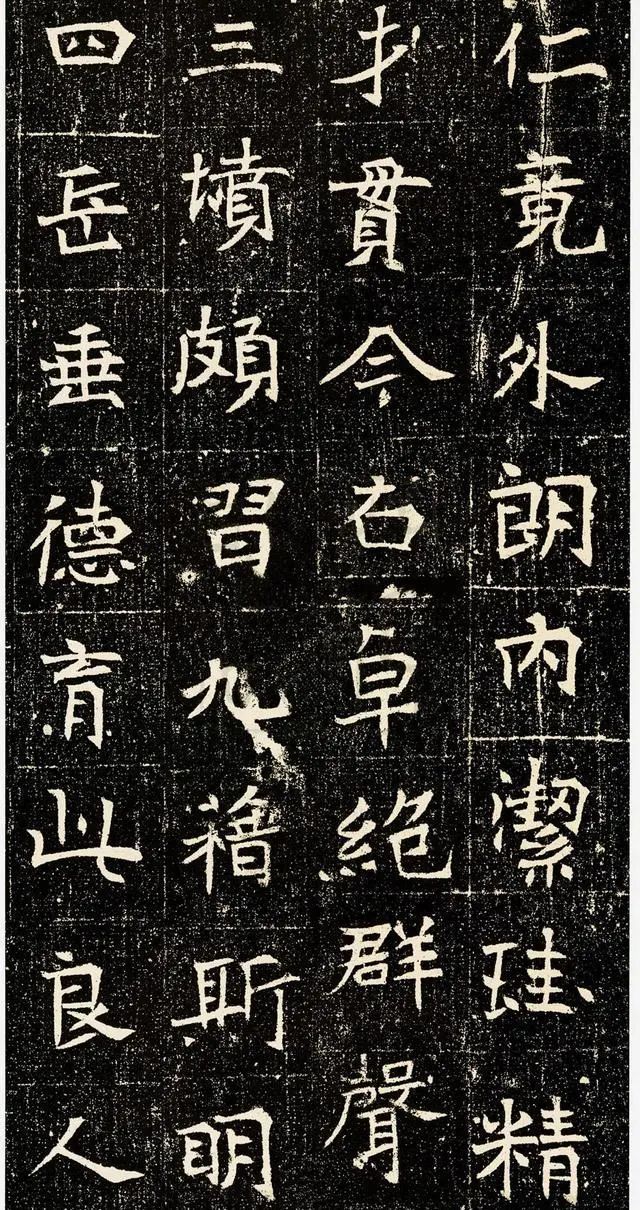 仁竟外朗內潔珪精
才貫今古卓絕群聲
三墳頗習九藉斯明
四岳垂德育此良人